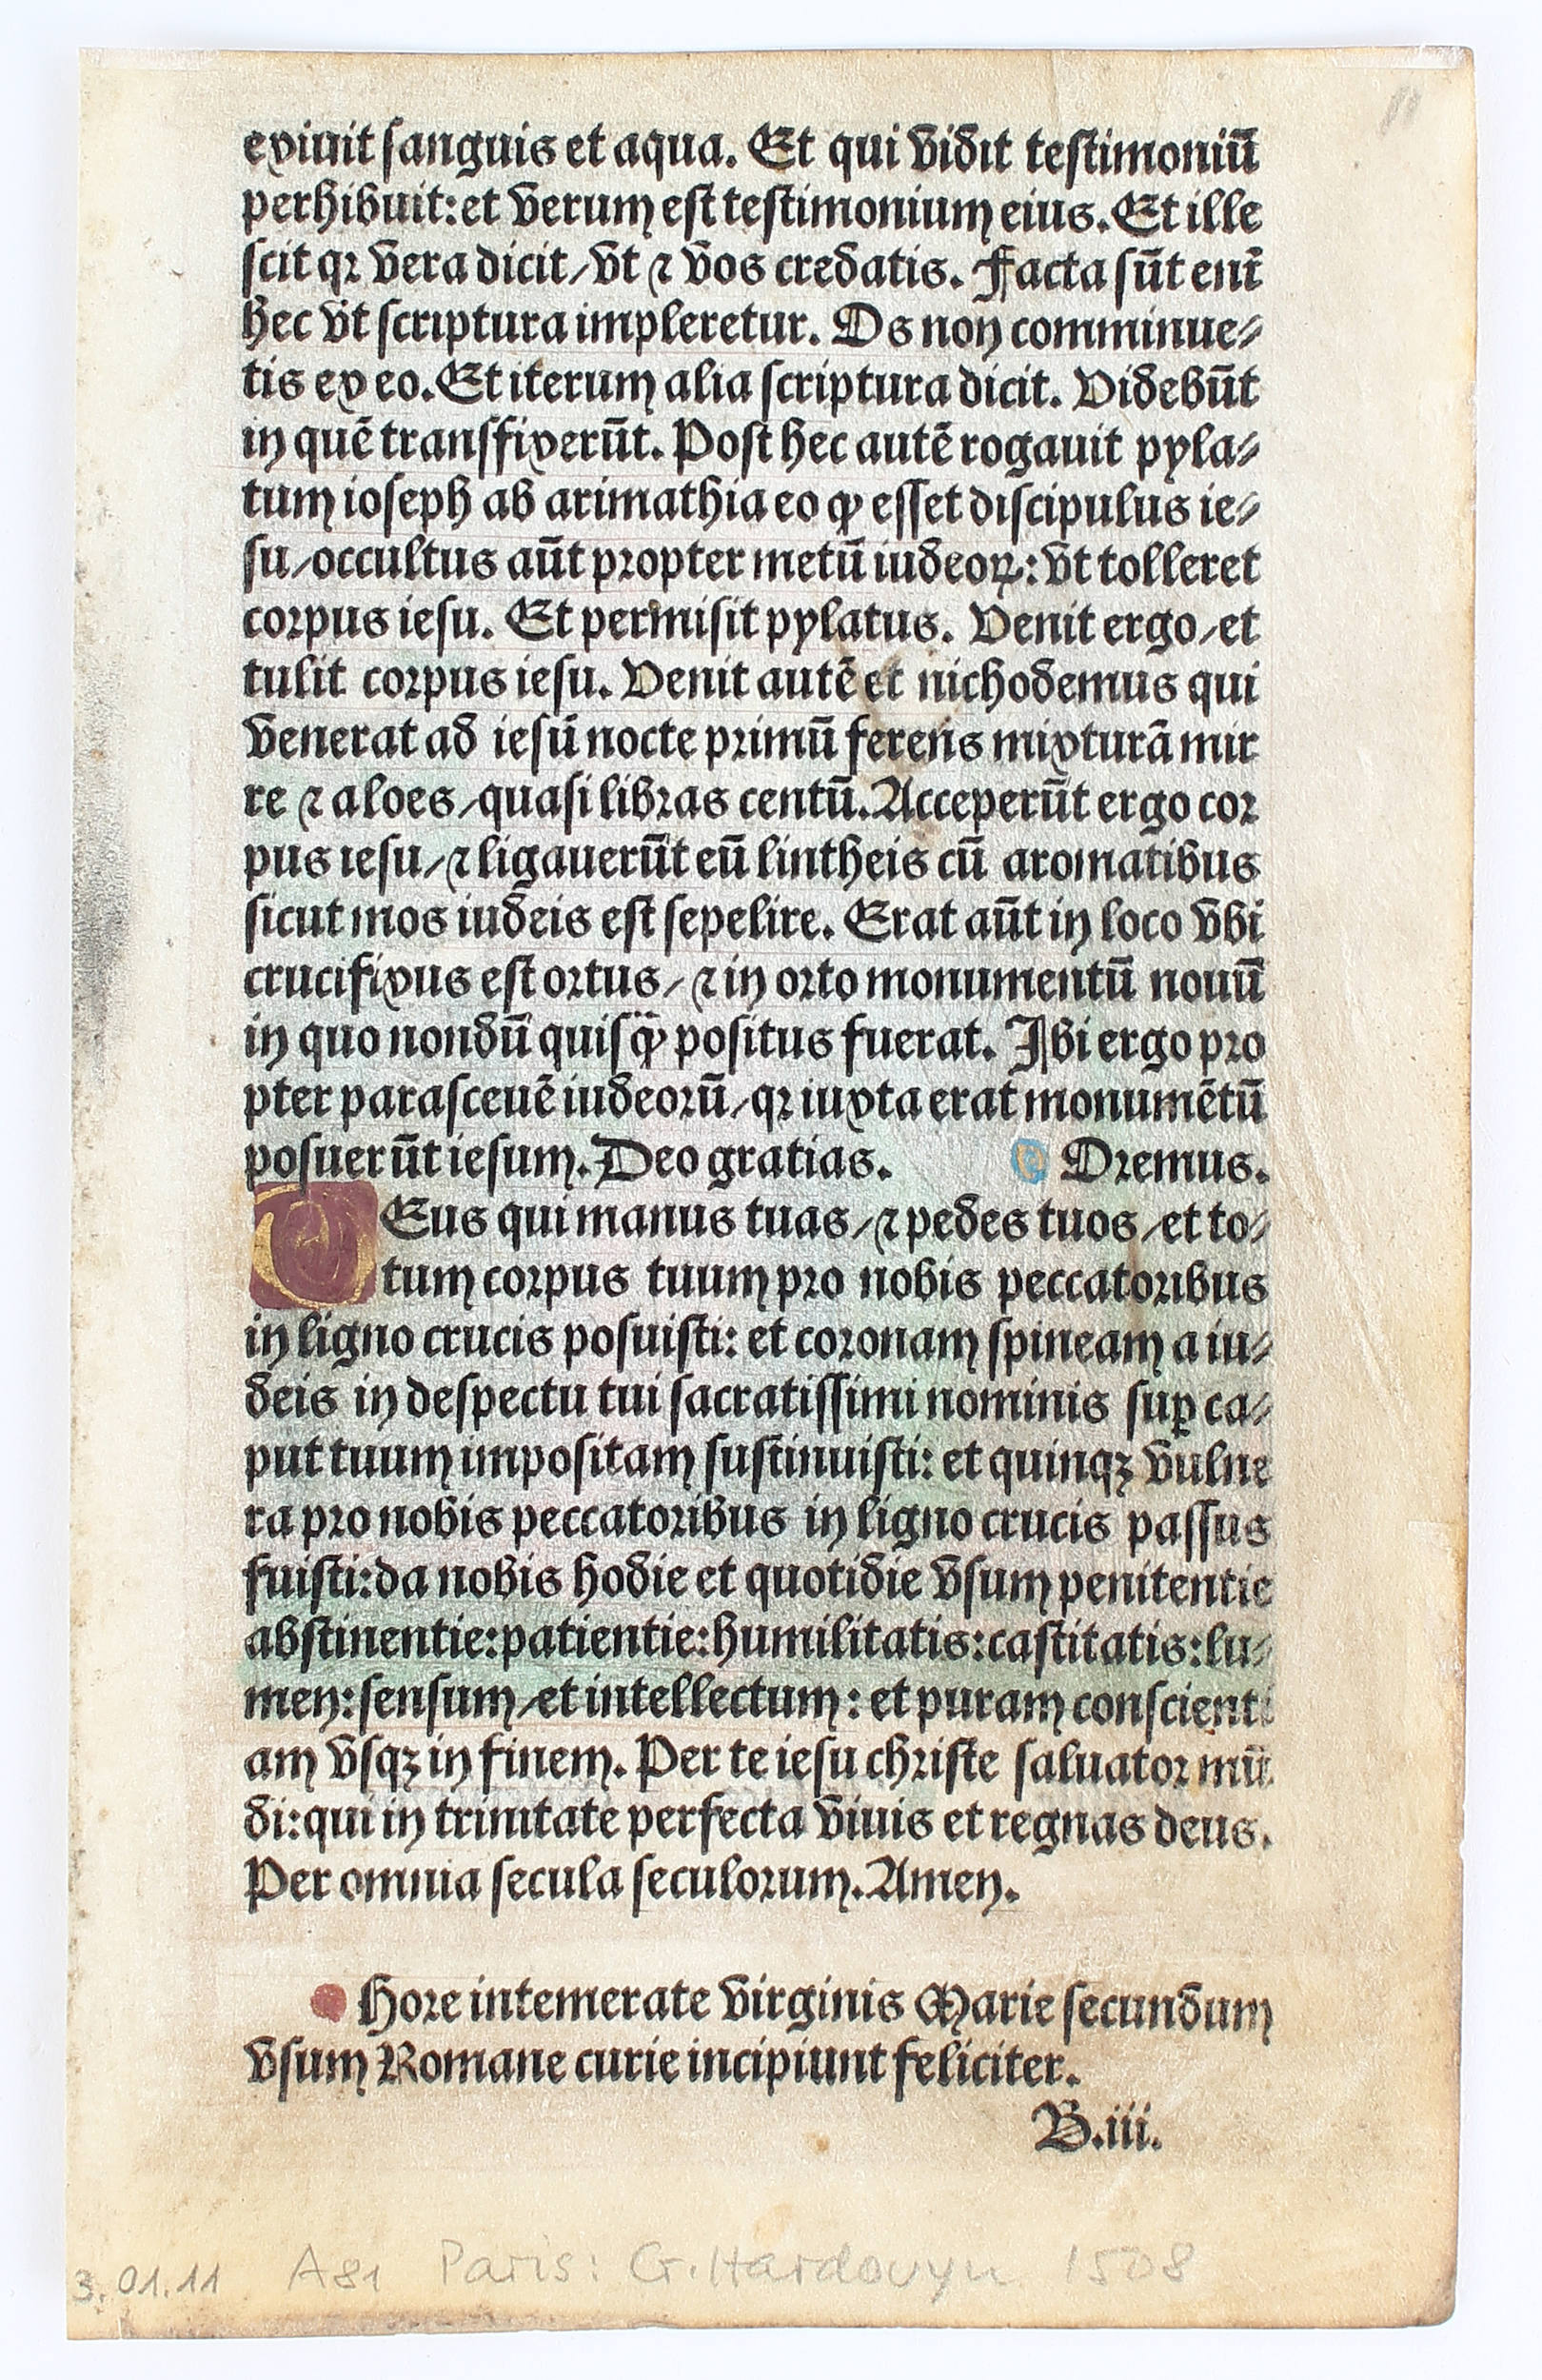 exiuit sanguis et aqua. Et qui vidit testimoniū
perhibuit: et verum est testimonium eius. Et ille
scit qꝛ vera dicit / vt ⁊ vos credatis. Facta sūt enī
hec vt scriptura impleretur. Os non comminue⸗
tis ex eo. Et iterum alia scriptura dicit. Videbūt
in quē transfixerūt. Post hec autē rogauit pyla⸗
tum ioseph ab arimathia eo ꝙ esset discipulus ie⸗
su / occultus aūt propter metū iudeoꝝ: vt tolleret
corpus iesu. Et permisit pylatus. Venit ergo / et
tulit corpus iesu. Venit autē et nichodemus qui
venerat ad iesū nocte primū ferens mixturā mir
re ⁊ aloes / quasi libras centū. Acceperūt ergo cor
pus iesu / ⁊ ligauerūt eū lintheis cū aromatibus
sicut mos iudeis est sepelire. Erat aūt in loco vbi
crucifixus est ortus / ⁊ in orto monumentū nouū
in quo nondū quisꝙ̄ positus fuerat. Ibi ergo pro
pter parasceuē iudeorū / qꝛ iuxta erat monumētū
posuerūt iesum. Deo gratias. Oremus.
DEus qui manus tuas / ⁊ pedes tuos / et to⸗
tum corpus tuum pro nobis peccatoribus
in ligno crucis posuisti: et coronam spineam a iu⸗
deis in despectu tui sacratissimi nominis suꝑ ca⸗
put tuum impositam sustinuisti: et quinqꝫ vulne
ra pro nobis peccatoribus in ligno crucis passus
fuisti: da nobis hodie et quotidie vsum penitentie
abstinentie: patientie: humilitatis: castitatis: lu⸗
men: sensum / et intellectum: et puram conscienti
am vsqꝫ in finem. Per te iesu christe saluator mū
di: qui in trinitate perfecta viuis et regnas deus.
Per omnia secula seculorum. Amen.
Hore intemerate virginis Marie secundum
vsum Romane curie incipiunt feliciter.
B.iii.
3.01.11 A81 Paris: G. Hardouyn 1508